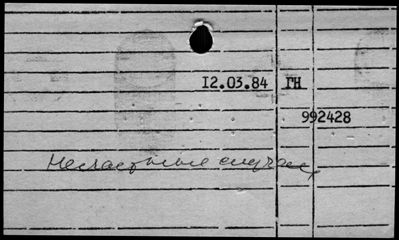 12.03.84 ГН
992428
Несчастные случаи,